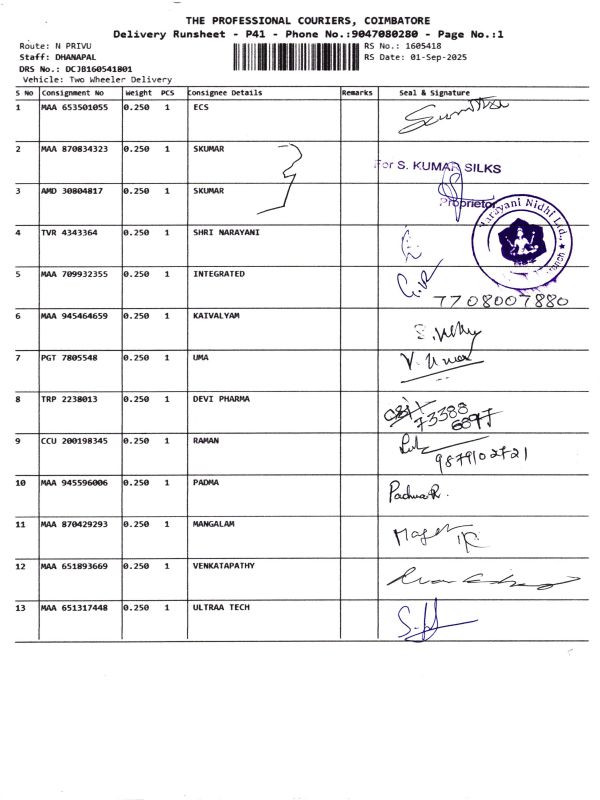 THE PROFESSIONAL COURIERS, COIMBATORE
Delivery Runsheet - P41 - Phone No.:9047080280 - Page No.:1
Route: N PRIVU RS No.: 1605418
Staff: DHANAPAL RS Date: 01-Sep-2025
DRS No.: DCJB160541801
Vehicle: Two Wheeler Delivery
S No Consignment No Weight PCS Consignee Details Remarks Seal & Signature
1 MAA 653501055 0.250 1 ECS
2 MAA 870834323 0.250 1 SKUMAR
For S. KUMAR SILKS
3 AMD 30804817 0.250 1 SKUMAR
Proprietor
Narayani Nidhi Ltd.,
4 TVR 4343364 0.250 1 SHRI NARAYANI
5 MAA 709932355 0.250 1 INTEGRATED
7708007880
6 MAA 945464659 0.250 1 KAIVALYAM
7 PGT 7805548 0.250 1 UMA V. Uma
8 TRP 2238013 0.250 1 DEVI PHARMA
73388
6897
9 CCU 200198345 0.250 1 RAMAN
9879102721
10 MAA 945596006 0.250 1 PADMA PadmaR.
11 MAA 870429293 0.250 1 MANGALAM
12 MAA 651893669 0.250 1 VENKATAPATHY
13 MAA 651317448 0.250 1 ULTRAA TECH